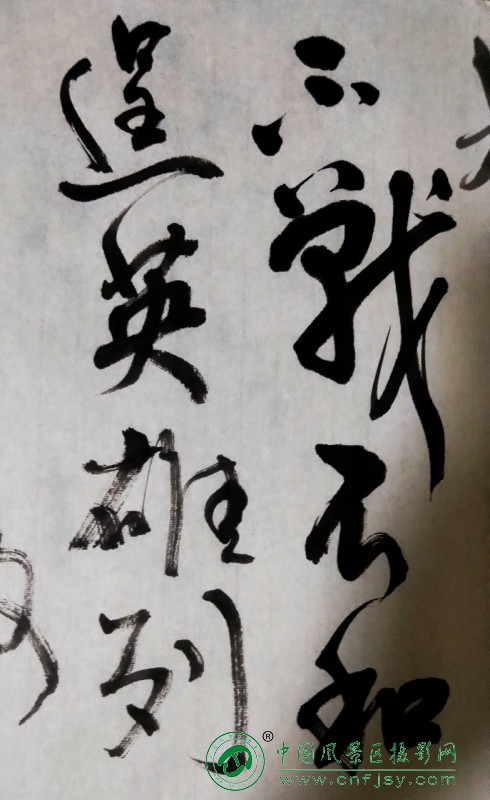 不战不和
逞英雄到
®
中国风景区摄影网
www.cnfjsy.com